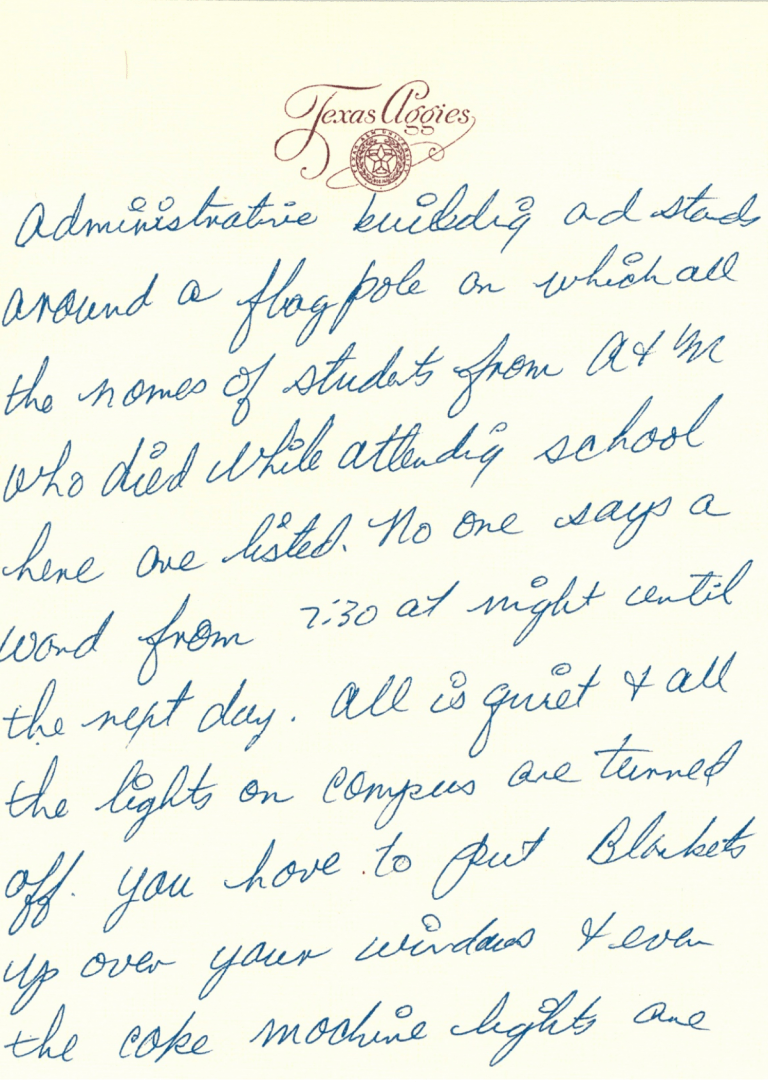 Texas Aggies
TEXAS A&M UNIVERSITY
administrative building ad stads
around a flag pole on which all
the names of students from A & M
who died while attendig school
here are listed. No one says a
word from 7:30 at night until
the next day. All is quiet & all
the lights on campus are turned
off. You have to put Blankets
up over your windows & even
the coke machine lights are